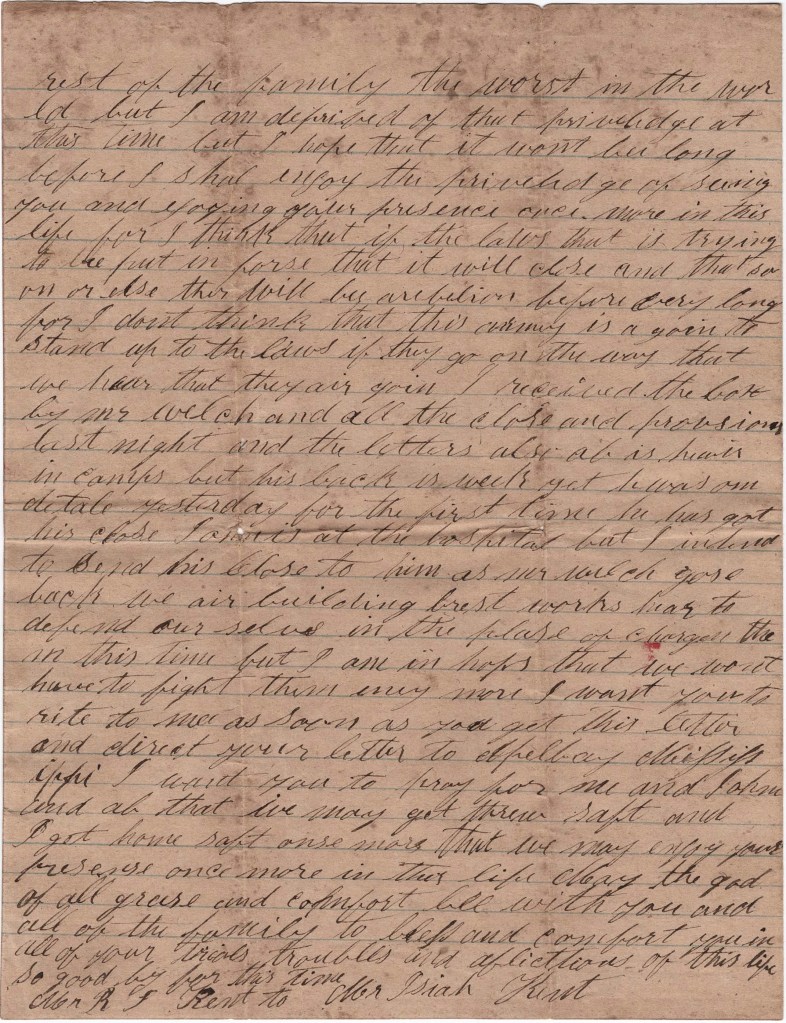 rest of the family the worst in the wor
ld but I am deprived of that priveledge at
this time but I hope that it wont bee long
before I shal enjoy the priveledge of seeing
you and egoying your presence once more in this
life for I think that if the laws that is trying
to be put in forse that it will close and that so
on or else ther will bee arebelion before very long
for I dont think that this army is a goin to
stand up to the laws if they go on the way that
we hear that they air goin I received the box
by mr welch and all the close and provisions
last night and the letters also ab is heair
in camps but his back is week yet he was on
detale yesterday for the first time he has got
his close John is at the hospital but I intend
to send his close to him as mr welch gose
back we air building brest works hear to
defend our selvs in the plase of chargen the
m this time but I am in hops that we wont
have to fight them eney more I want you to
rite to me as soon as you get this letter
and direct your letter to Mississ
ippi I want you to pray for me and John
and ab that we may get threw saft and
I got home saft onse more that we may enjoy your
presense once more in this life May the god
of all grase and comfort bee with you and
all of the family to bless and comfort you in
all of your trials troubles and aflictions of this life
so good by for this time
Mr R F Kent to Mr Isiah Kent